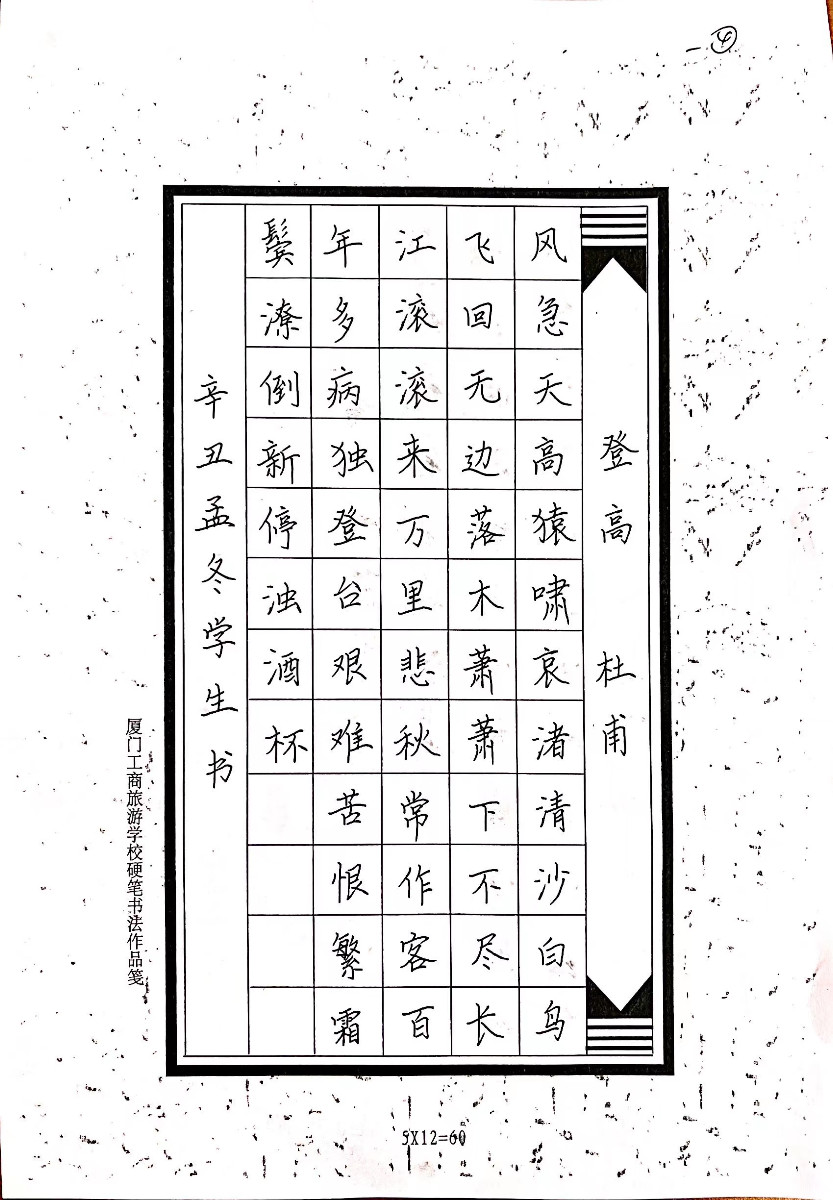 ④
登高 杜甫
风急天高猿啸哀渚清沙白鸟
飞回无边落木萧萧下不尽长
江滚滚来万里悲秋常作客百
年多病独登台艰难苦恨繁霜
鬓潦倒新停浊酒杯
辛丑孟冬学生书
厦门工商旅游学校硬笔书法作品笺
5X12=60